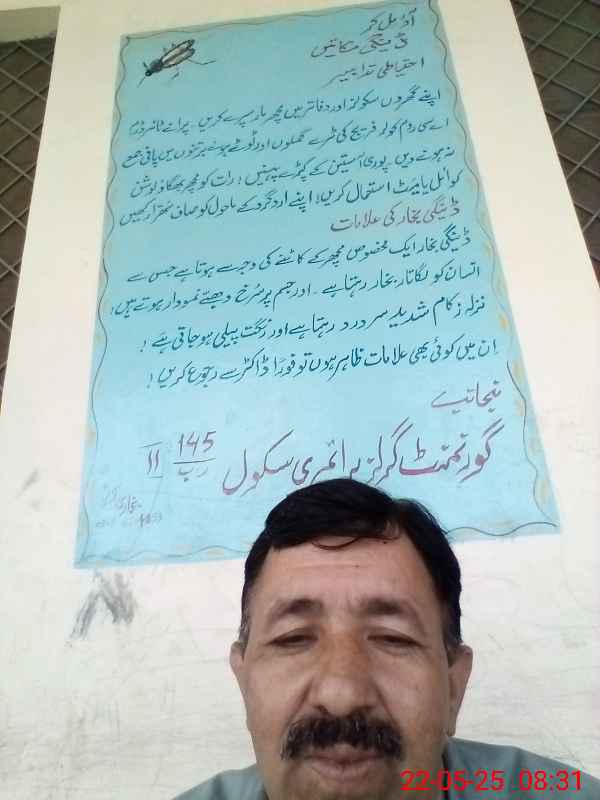 آؤ مل کر
ڈینگی مکائیں
احتیاطی تدابیر
اپنے گھروں سکولز اور دفاتر میں مچھر مار سپرے کریں۔ پرانے ٹائر و ڈرم
اے سی روم کولر فریج کی ٹرے گملوں اور ٹوٹے ہوئے برتنوں میں پانی جمع
نہ ہونے دیں۔ پوری آستین کے کپڑے پہنیں! رات کو مچھر بھگاؤ لوشن
کوائل یا میٹ استعمال کریں! اپنے ارد گرد کے ماحول کو صاف ستھرا رکھیں
ڈینگی بخار کی علامات
ڈینگی بخار ایک مخصوص مچھر کے کاٹنے کی وجہ سے ہوتا ہے جس سے
انسان کو لگاتار بخار رہتا ہے۔ اور جسم پر سرخ دھبے نمودار ہوتے ہیں!
نزلہ زکام شدید سر درد رہتا ہے اور رنگت پیلی ہو جاتی ہے!
اِن میں کوئی بھی علامات ظاہر ہوں تو فوراً ڈاکٹر سے رجوع کریں!
منجانب
گورنمنٹ گرلز پرائمری سکول 145 رب II
22-05-25 08:31